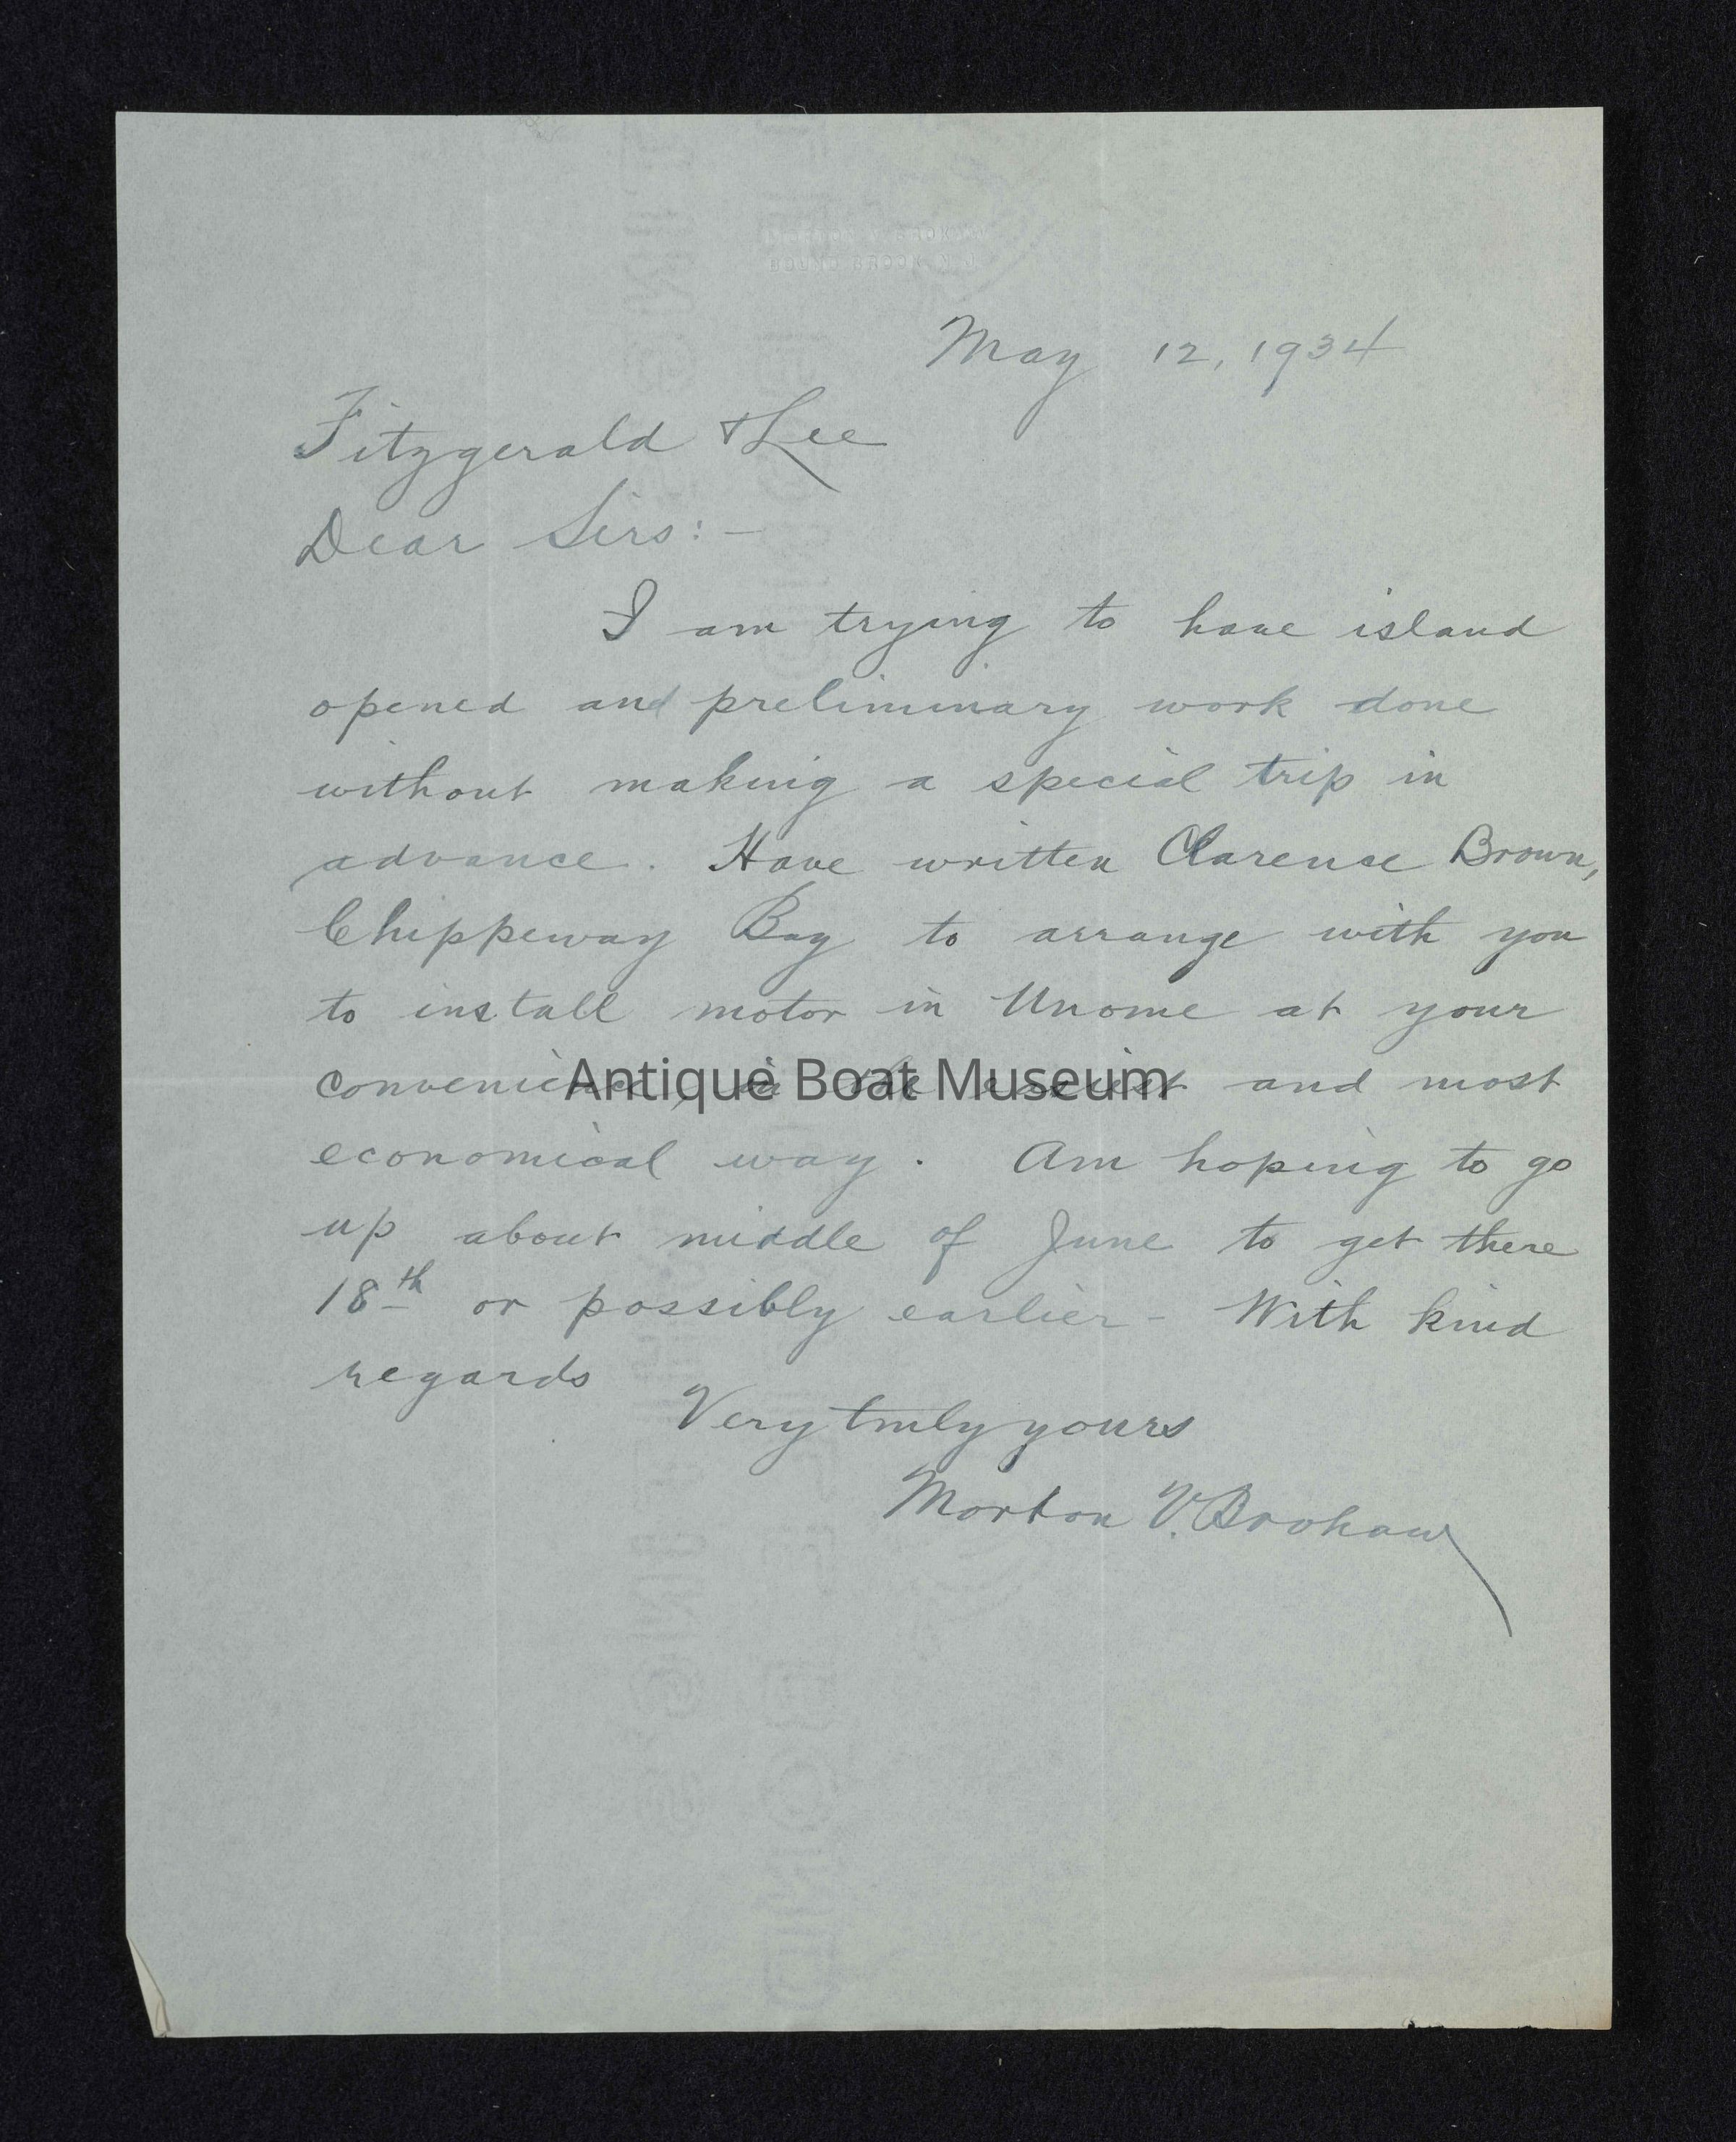 May 12, 1934
Fitzgerald & Lee
Dear Sirs:-
I am trying to have island
opened and preliminary work done
without making a special trip in
advance. Have written Clarence Brown,
Chippeway Bay to arrange with you
to install motor in Unome at your
convenience, in the easiest and most
Antique Boat Museum
economical way. Am hoping to go
up about middle of June to get there
18th or possibly earlier - With kind
regards
Very truly yours
Morton V. Brokaw